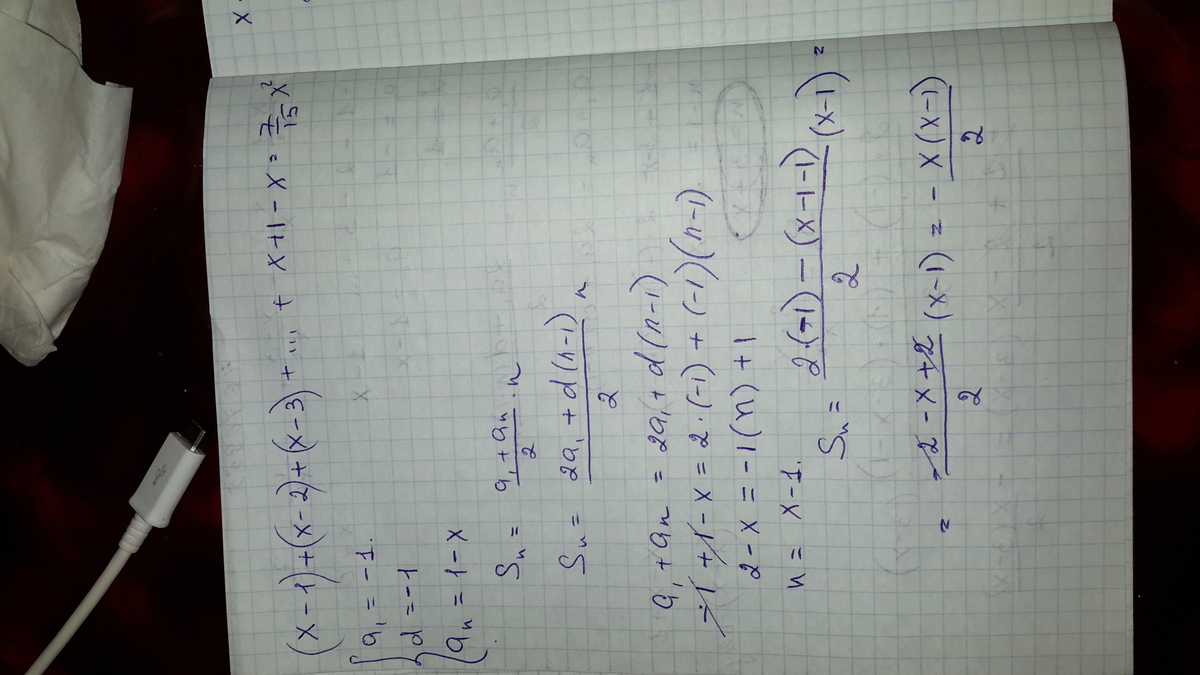 (x-1)+(x-2)+(x-3)+...+ x+1-x = 7/15 x²
a₁ = -1.
d = -1
aₙ = 1-x
Sₙ = (a₁+aₙ)/2 · n
Sₙ = (2a₁+d(n-1))/2 n
a₁+aₙ = 2a₁+d(n-1)
-1+1-x = 2·(-1)+(-1)(n-1)
2-x = -1(n)+1
n = x-1.
Sₙ = (2·(-1)-(x-1-1))/2 (x-1) =
= (-2-x+2)/2 (x-1) = - x(x-1)/2